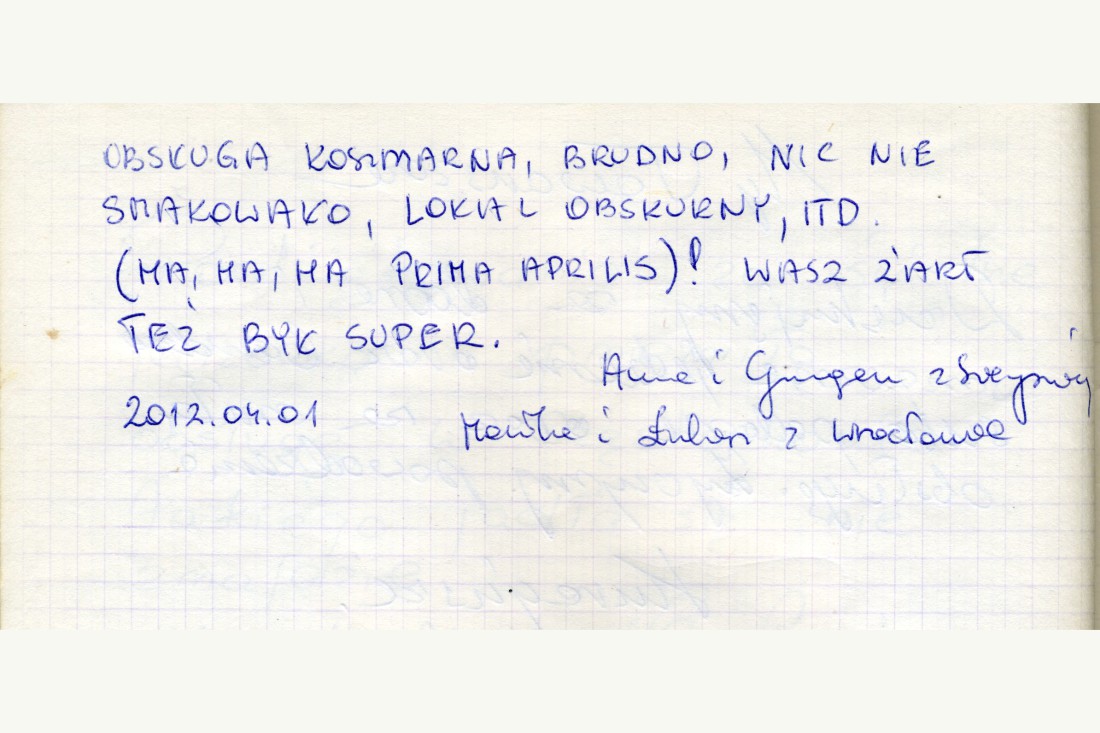 OBSŁUGA KOSZMARNA, BRUDNO, NIC NIE
SMAKOWAŁO, LOKAL OBSKURNY, ITD.
(HA, HA, HA PRIMA APRILIS)! WASZ ŻART
TEŻ BYŁ SUPER.
2012.04.01
Anna i z
i z Wrocławia